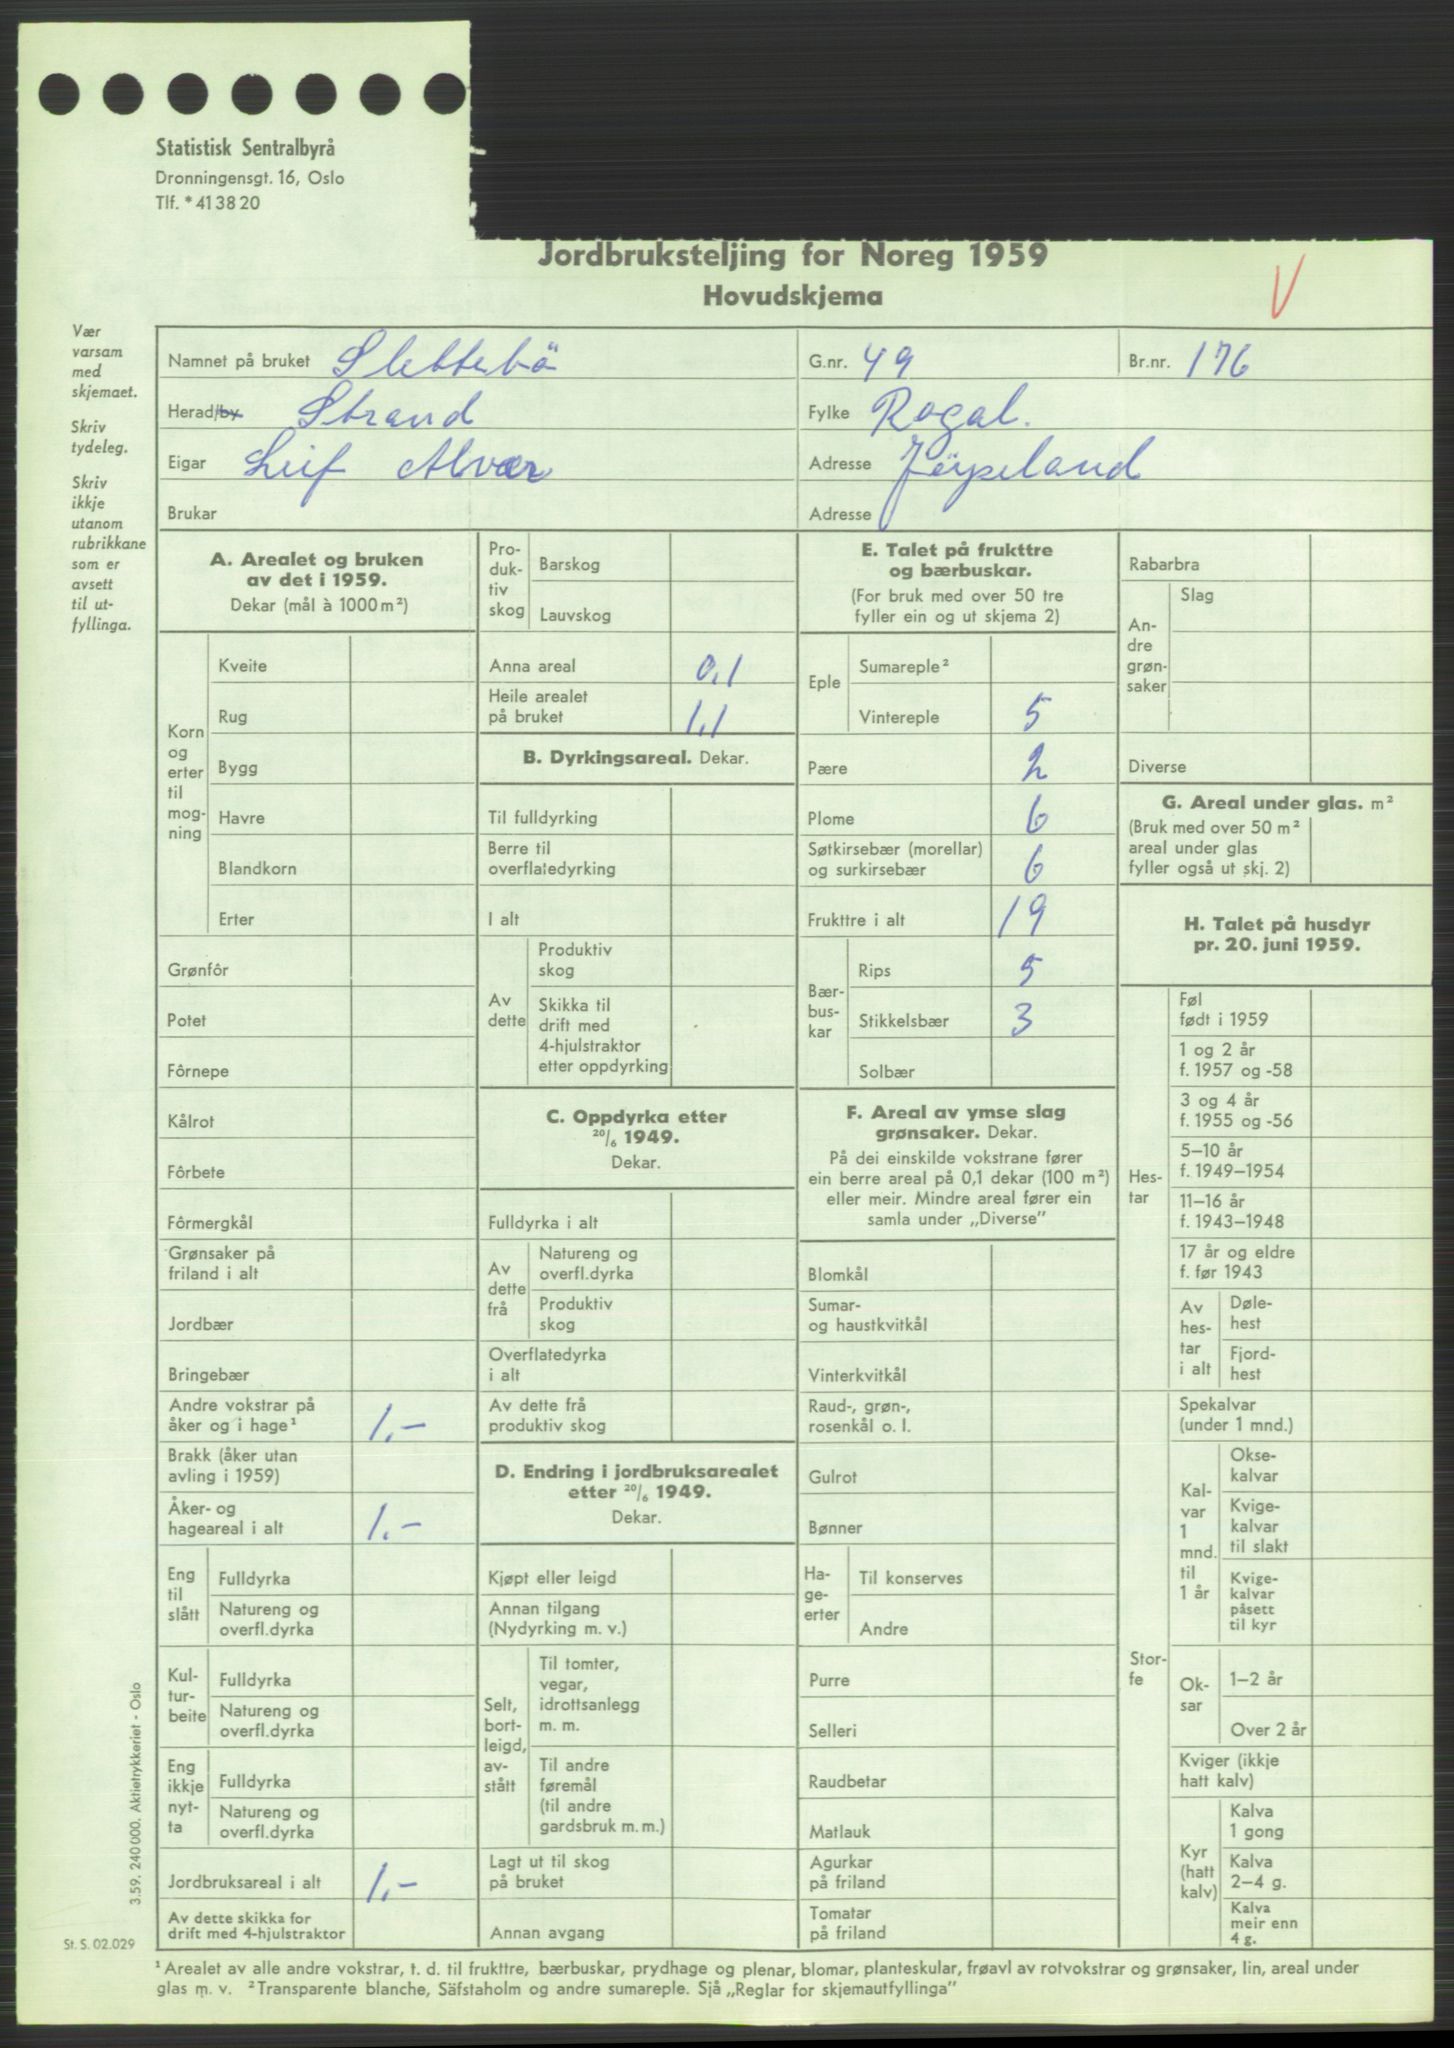 Statistisk Sentralbyrå
Dronningensgt. 16, Oslo
Tlf. * 41 38 20
Jordbruksteljing for Noreg 1959
Hovudskjema
V
Vær
varsam
med
skjemaet.
Skriv
tydeleg.
Skriv
ikkje
utanom
rubrikkane
som er
avsett
til ut-
fyllinga.
Namnet på bruket Slettebö G.nr. 49 Br.nr. 176
Herad/by Strand Fylke Rogal.
Eigar Leif Alvær Adresse Jörpeland
Brukar Adresse
A. Arealet og bruken
av det i 1959.
Dekar (mål à 1000 m²)
Korn
og
erter
til
mog-
ning
Kveite
Rug
Bygg
Havre
Blandkorn
Erter
Grønfôr
Potet
Fôrnepe
Kålrot
Fôrbete
Fôrmergkål
Grønsaker på
friland i alt
Jordbær
Bringebær
Andre vokstrar på
åker og i hage¹ 1.-
Brakk (åker utan
avling i 1959)
Åker- og
hageareal i alt 1.-
Eng
til
slått
Fulldyrka
Natureng og
overfl.dyrka
Kul-
tur-
beite
Fulldyrka
Natureng og
overfl.dyrka
Eng
ikkje
nyt-
ta
Fulldyrka
Natureng og
overfl.dyrka
Jordbruksareal i alt 1.-
Av dette skikka for
drift med 4-hjulstraktor
Pro-
duk-
tiv
skog
Barskog
Lauvskog
Anna areal 0,1
Heile arealet
på bruket 1,1
B. Dyrkingsareal. Dekar.
Til fulldyrking
Berre til
overflatedyrking
I alt
Av
dette
Produktiv
skog
Skikka til
drift med
4-hjulstraktor
etter oppdyrking
C. Oppdyrka etter
20/6 1949.
Dekar.
Fulldyrka i alt
Av
dette
frå
Natureng og
overfl.dyrka
Produktiv
skog
Overflatedyrka
i alt
Av dette frå
produktiv skog
D. Endring i jordbruksarealet
etter 20/6 1949.
Dekar.
Kjøpt eller leigd
Annan tilgang
(Nydyrking m. v.)
Selt,
bort-
leigd,
av-
stått
Til tomter,
vegar,
idrottsanlegg
m. m.
Til andre
føremål
(til andre
gardsbruk m. m.)
Lagt ut til skog
på bruket
Annan avgang
E. Talet på frukttre
og bærbuskar.
(For bruk med over 50 tre
fyller ein og ut skjema 2)
Eple
Sumareple²
Vintereple 5
Pære 2
Plome 6
Søtkirsebær (morellar)
og surkirsebær 6
Frukttre i alt 19
Bær-
bus-
kar
Rips 5
Stikkelsbær 3
Solbær
F. Areal av ymse slag
grønsaker. Dekar.
På dei einskilde vokstrane fører
ein berre areal på 0,1 dekar (100 m²)
eller meir. Mindre areal fører ein
samla under „Diverse”
Blomkål
Sumar-
og haustkvitkål
Vinterkvitkål
Raud-, grøn-,
rosenkål o. l.
Gulrot
Bønner
Ha-
ge-
erter
Til konserves
Andre
Purre
Selleri
Raudbetar
Matlauk
Agurkar
på friland
Tomatar
på friland
Rabarbra
An-
dre
grøn-
saker
Slag
Diverse
G. Areal under glas. m²
(Bruk med over 50 m²
areal under glas
fyller også ut skj. 2)
H. Talet på husdyr
pr. 20. juni 1959.
Hes-
tar
Føl
født i 1959
1 og 2 år
f. 1957 og -58
3 og 4 år
f. 1955 og -56
5–10 år
f. 1949–1954
11–16 år
f. 1943–1948
17 år og eldre
f. før 1943
Av
hes-
tar
i alt
Døle-
hest
Fjord-
hest
Stor-
fe
Spekalvar
(under 1 mnd.)
Kal-
var
1
mnd.
til
1 år
Okse-
kalvar
Kvige-
kalvar
til slakt
Kvige-
kalvar
påsett
til kyr
Ok-
sar
1–2 år
Over 2 år
Kviger (ikkje
hatt kalv)
Kyr
(hatt
kalv)
Kalva
1 gong
Kalva
2–4 g.
Kalva
meir enn
4 g.
3.59. 240 000. Aktietrykkeriet - Oslo
St. S. 02.029
¹ Arealet av alle andre vokstrar, t. d. til frukttre, bærbuskar, prydhage og plenar, blomar, planteskular, frøavl av rotvokstrar og grønsaker, lin, areal under
glas m. v. ² Transparente blanche, Säfstaholm og andre sumareple. Sjå „Reglar for skjemautfyllinga”